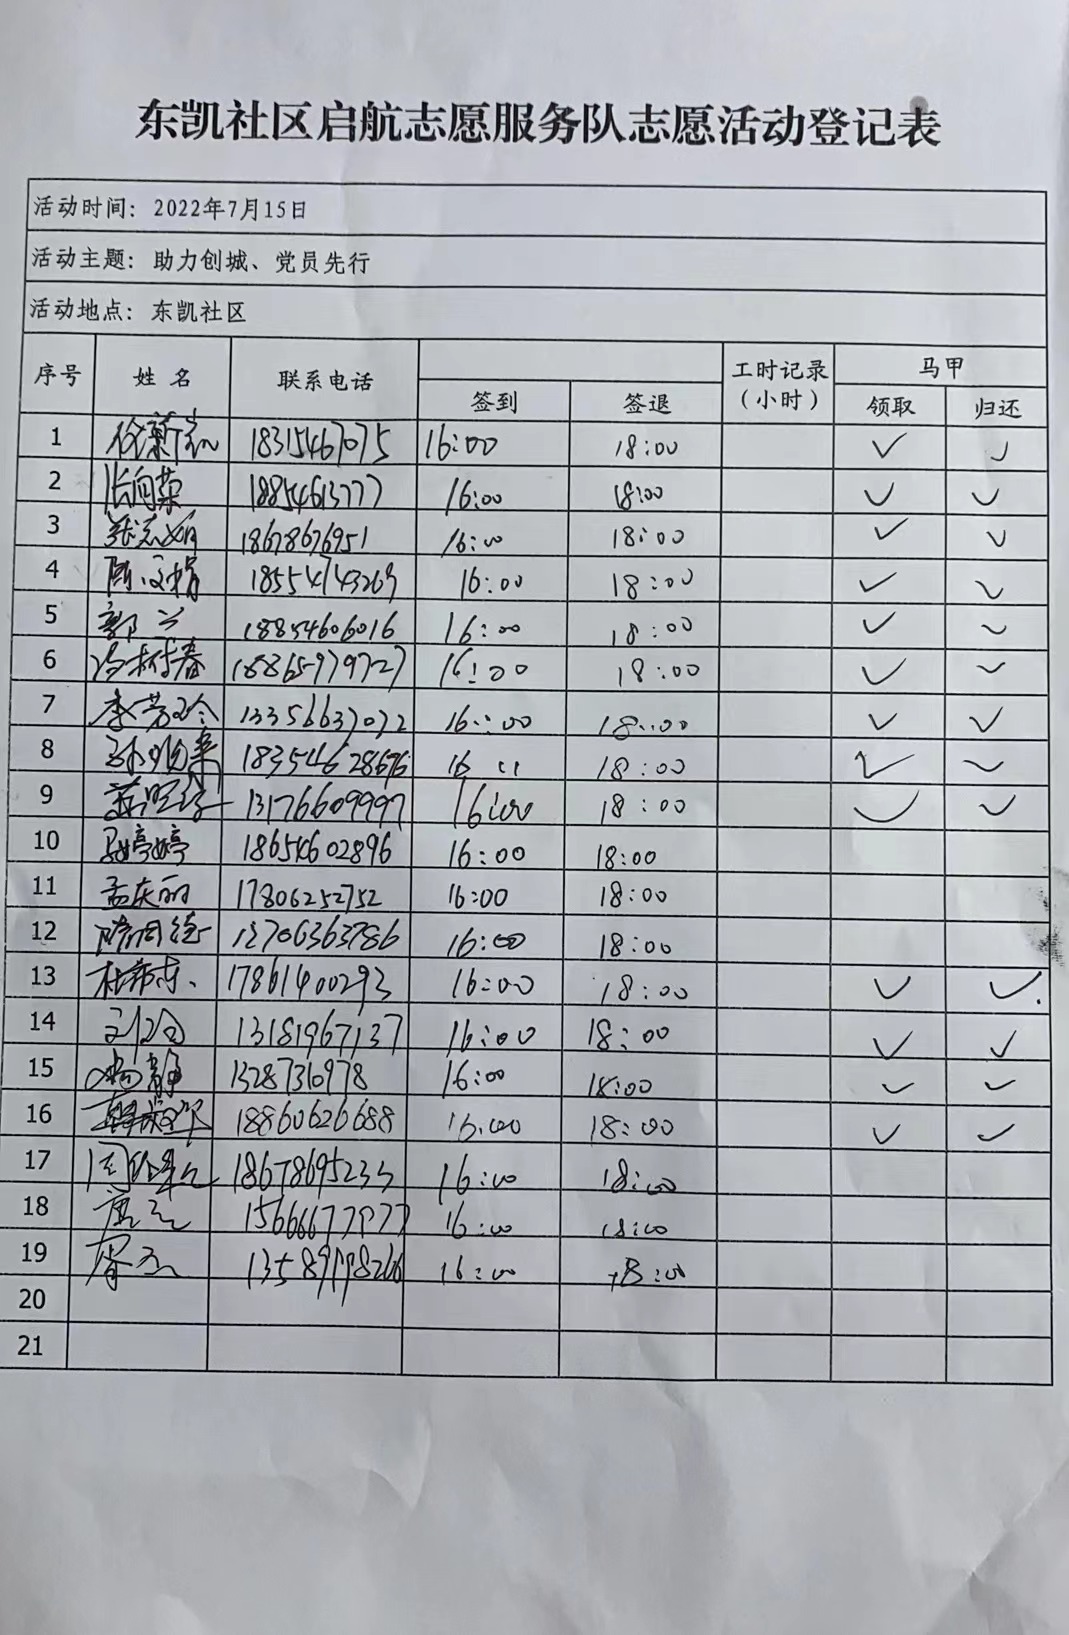 东凯社区启航志愿服务队志愿活动登记表
活动时间：2022年7月15日
活动主题：助力创城、党员先行
活动地点：东凯社区
序号 姓名 联系电话 签到 签退 工时记录（小时） 马甲 领取 归还
1 18315467075 16:00 18:00 ✓ ✓
2 18854613777 16:00 18:00 ✓ ✓
3 18678676951 16:00 18:00 ✓ ✓
4 18554743269 16:00 18:00 ✓ ✓
5 郭兰 18854606016 16:00 18:00 ✓ ✓
6 18865979727 16:00 18:00 ✓ ✓
7 李芳玲 13356637072 16:00 18:00 ✓ ✓
8 16 18:00 ✓ ✓
9 13176609997 16:00 18:00 ✓ ✓
10 马婷婷 18654602896 16:00 18:00
11 孟庆丽 17806252752 16:00 18:00
12 16:00 18:00
13 杜希东 17861400293 16:00 18:00 ✓ ✓
14 13181967137 16:00 18:00 ✓ ✓
15 杨静 13287310978 16:00 18:00 ✓ ✓
16 18860626688 16:00 18:00 ✓ ✓
17 18678695233 16:00 18:00
18 16:00 18:00
19 16:00 18:00
20
21